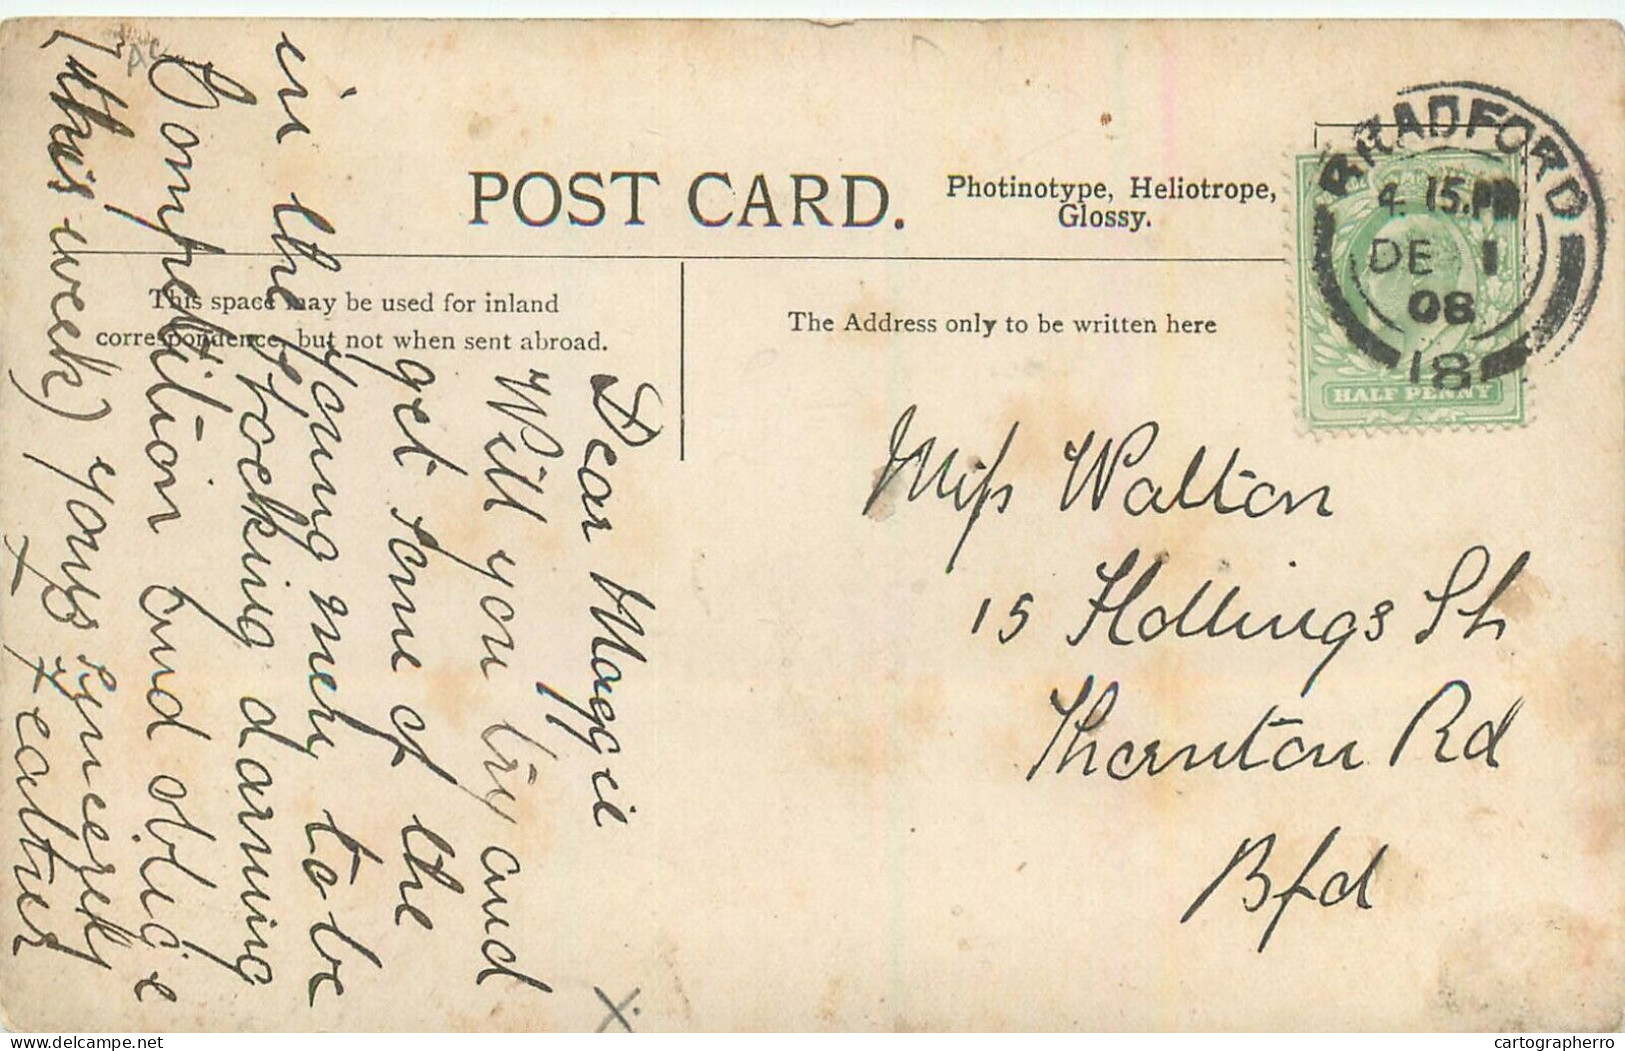 POST CARD.
Photinotype, Heliotrope,
Glossy.
BRADFORD
4. 15.PM
DE 1
08
18
HALF PENNY
This space may be used for inland
correspondence, but not when sent abroad.
The Address only to be written here
Miss Walton
15 Hollings St
Thornton Rd
Bfd
Dear Maggie
Will you try and
get some of the
young men to be
in the stocking darning
Competition and oblige
(this week) yours sincerely
Feather
cartographerro